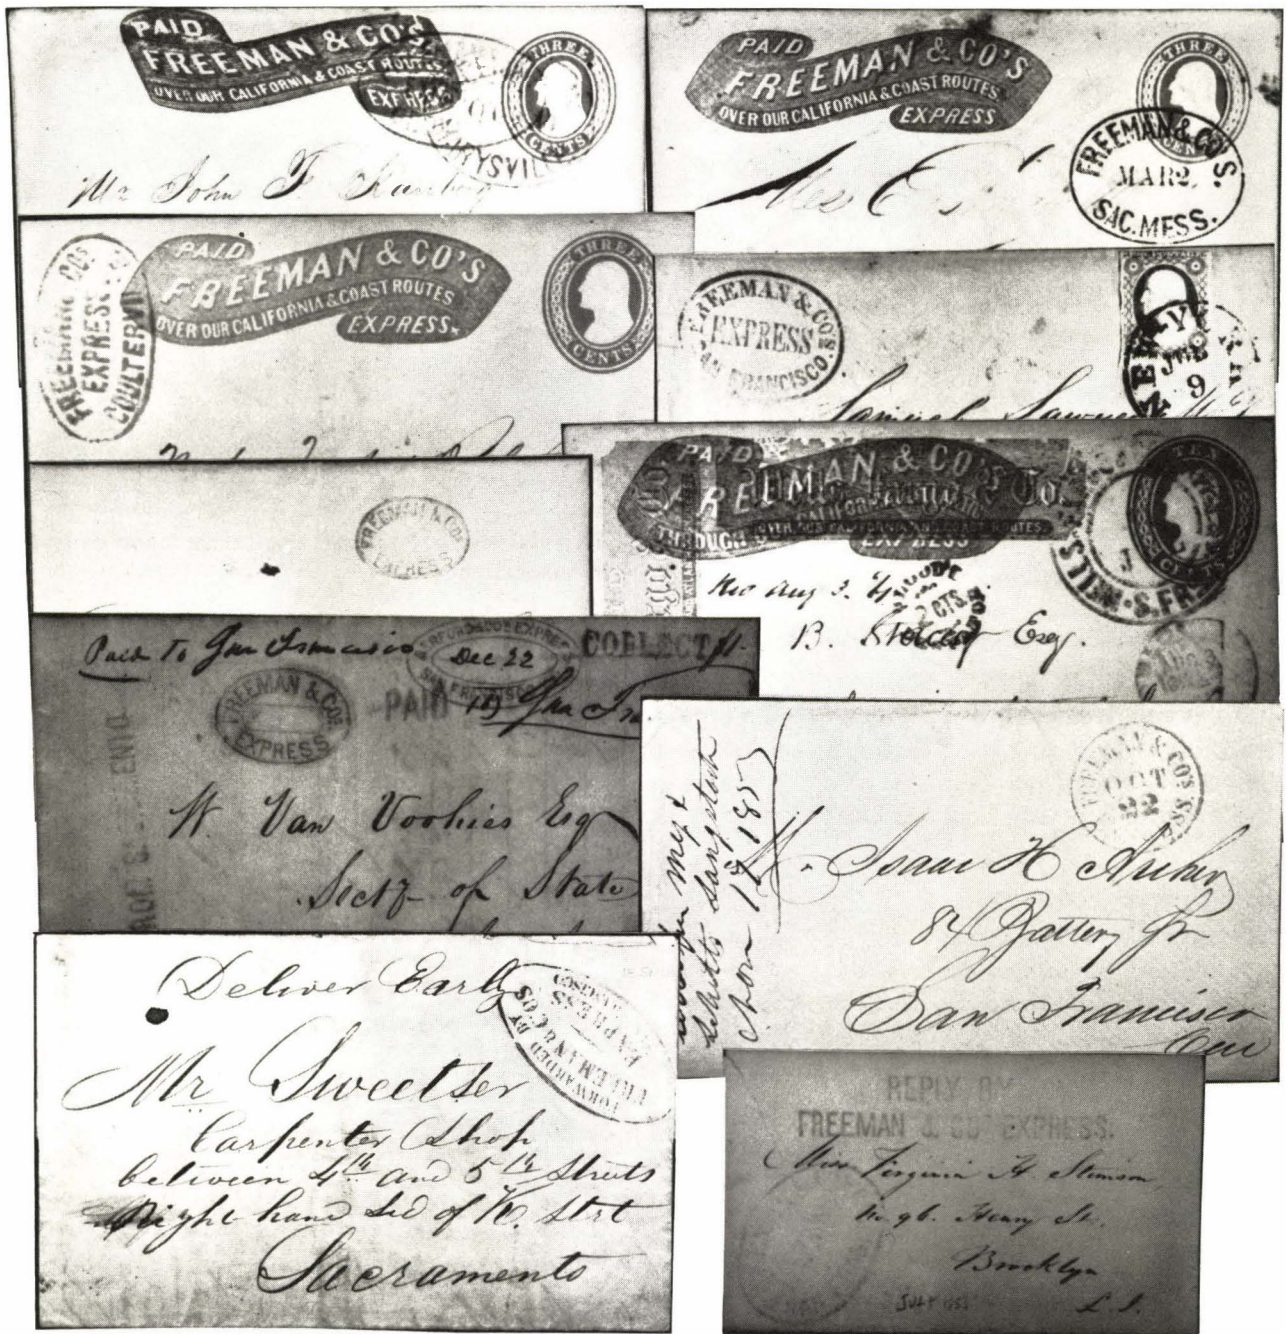 PAID
FREEMAN & CO'S
OVER OUR CALIFORNIA & COAST ROUTES
EXPRESS
THREE
CENTS
Mr John F
PAID
FREEMAN & CO'S
OVER OUR CALIFORNIA & COAST ROUTES
EXPRESS
THREE
FREEMAN & CO'S.
MAR 2
SAC. MESS.
FREEMAN & COS
EXPRESS
COULTERVI
PAID
FREEMAN & CO'S
OVER OUR CALIFORNIA & COAST ROUTES
EXPRESS.
THREE
CENTS
FREEMAN & CO'S
EXPRESS
SAN FRANCISCO.
NEW-Y
9
Samuel
FREEMAN & CO'S
EXPRESS
PAID
FREEMAN & CO'S
OVER OUR CALIFORNIA AND COAST ROUTES
EXPRESS
THROUGH
TEN
CENTS
S. FR
CTS.
B. Esq.
Paid to San Francisco
Dec 22
COLLECT
FREEMAN & CO'S
EXPRESS
PAID
W. Van Voohies Esq
Secty of State
FREEMAN & CO'S
OCT
22
Isaac H
84 Battery St
San Francisco
Deliver Early
FORWARDED BY
FREEMAN & COS
EXPRESS
Mr Sweetser
Carpenter Shop
between 4th and 5th Streets
Right hand Sid of K. Strt
Sacramento
REPLY BY
FREEMAN & CO'S EXPRESS.
Miss Virginia H. Stimson
No 96. Henry St.
Brooklyn
L. I.